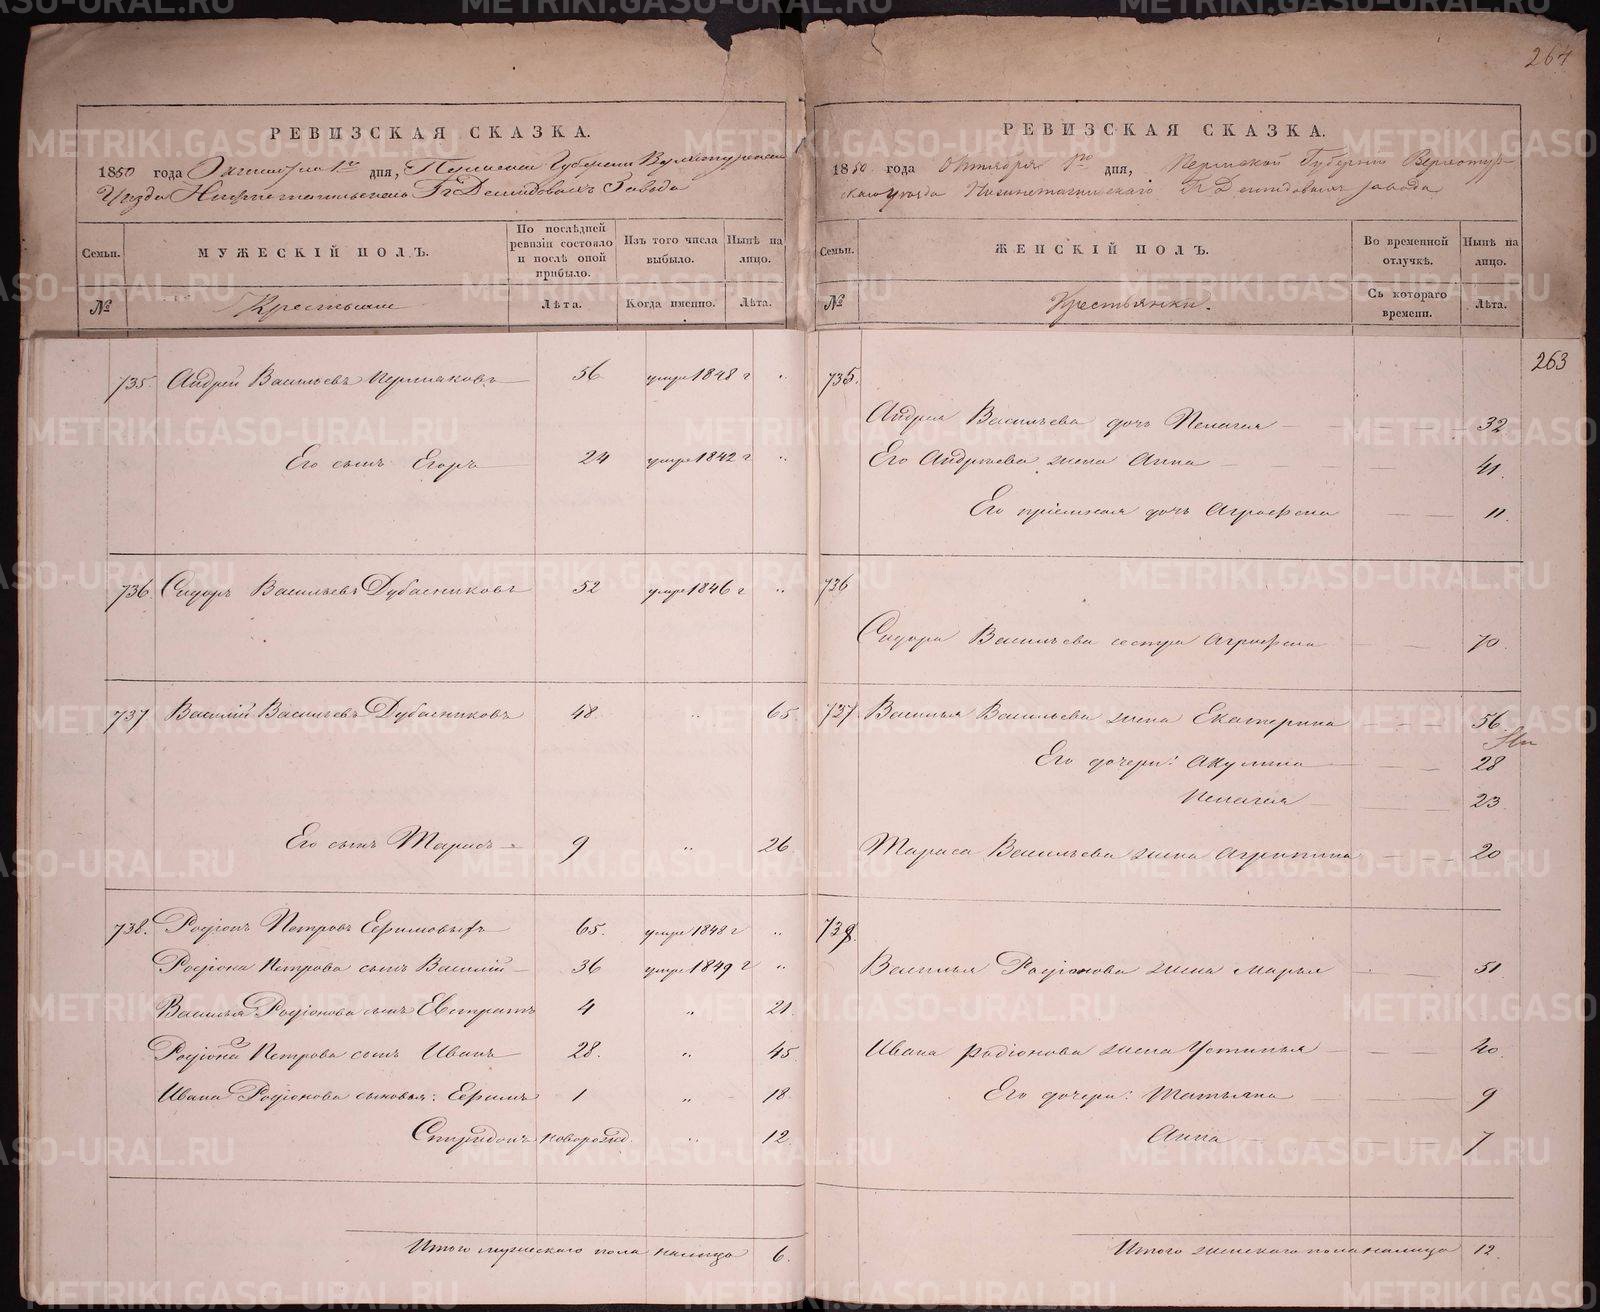 264
РЕВИЗСКАЯ СКАЗКА.
1850 года Октября 1го дня, Пермской Губерніи Верхотурскаго
Уѣзда Нижнетагильскаго Гг Демидовыхъ Завода
Семьи.
МУЖЕСКІЙ ПОЛЪ.
По послѣдней ревизіи состояло и послѣ оной прибыло.
Изъ того числа выбыло.
Нынѣ на лицо.
№
Крестьяне
Лѣта.
Когда именно.
Лѣта.
735. Андрей Васильевъ Пермяковъ 56 умре 1848 г "
Его сынъ Егоръ 24 умре 1842 г "
736. Сидоръ Васильевъ Дубасниковъ 52 умре 1846 г "
737 Василій Васильевъ Дубасниковъ 48. " 65.
Его сынъ Тарасъ 9 " 26
738. Родіонъ Петровъ Ефимовыхъ 65. умре 1848 г "
Родіона Петрова сынъ Василій 36 умре 1849 г "
Василья Родіонова сынъ Евстратъ 4 " 21.
Родіона Петрова сынъ Иванъ 28. " 45
Ивана Родіонова сыновья: Ефимъ 1 " 18
Спиридонъ новорожд. " 12.
Итого мужескаго пола налицо 6.
РЕВИЗСКАЯ СКАЗКА.
1850 года Октября 1го дня, Пермской Губерніи Верхотур-
скаго уѣзда Нижнетагильскаго Гг Демидовыхъ завода
Семьи.
ЖЕНСКІЙ ПОЛЪ.
Во временной отлучкѣ.
Нынѣ на лицо.
№
Крестьянки.
Съ котораго времени.
Лѣта.
263
735.
Андрея Васильева дочь Пелагея 32
Его Андреева жена Анна 41.
Его пріемная дочь Аграфена 11.
736
Сидора Васильева сестра Аграфена 70.
737. Василья Васильева жена Екатерина 56.
Его дочери: Акулина 28
Пелагея 23
Тараса Васильева жена Агрипина 20
738.
Василья Родіонова жена Марья 51
Ивана Радіонова жена Устинья 40.
Его дочери: Татьяна 9
Анна 7
Итого женскаго пола налицо 12.
METRIKI.GASO-URAL.RU